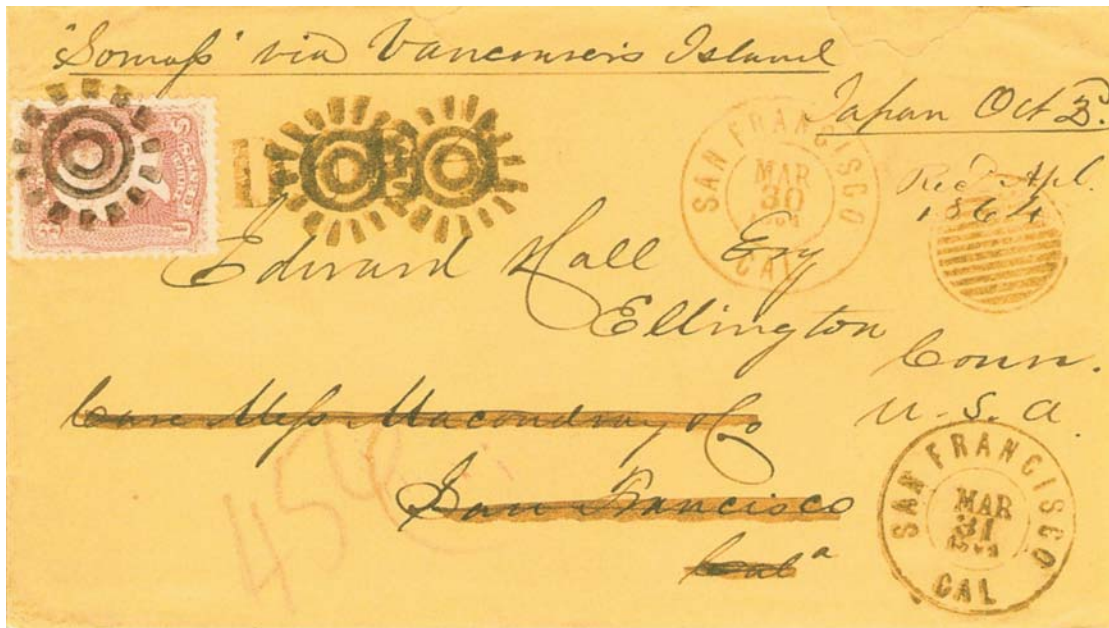 "Somass" via Vancouver's Island
Japan Oct 23.
SAN FRANCISCO
MAR
30
1864
CAL
Rec'd Apl.
1864
Edward Hall Esq
Ellington
Conn.
U. S. A.
Care Mess Macondray & Co
San Francisco
Cala
45
SAN FRANCISCO
MAR
31
1864
CAL